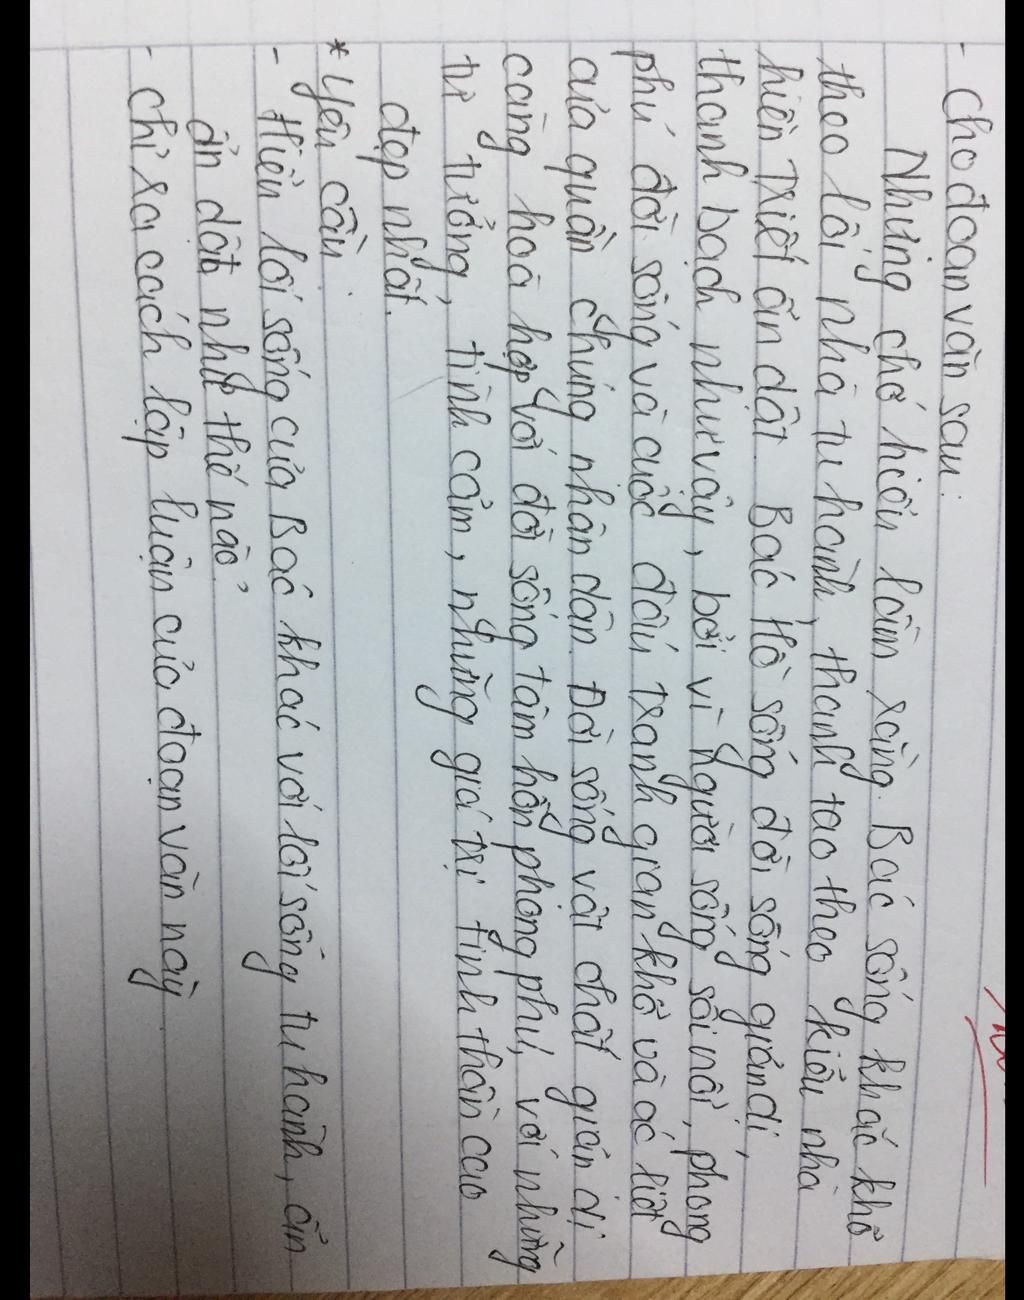 - Cho đoạn văn sau:
Nhưng chớ hiểu lầm rằng Bác sống khắc khổ
theo lối nhà tu hành, thanh tao theo kiểu nhà
hiền triết ẩn dật. Bác Hồ sống đời sống giản dị,
thanh bạch như vậy, bởi vì người sống sôi nổi, phong
phú đời sống và cuộc đấu tranh gian khổ và ác liệt
của quần chúng nhân dân. Đời sống vật chất giản dị
càng hoà hợp với đời sống tâm hồn phong phú, với những
tư tưởng, tình cảm, những giá trị tinh thần cao
đẹp nhất.
* Yêu cầu:
- Hiểu lối sống của Bác khác với lối sống tu hành, ẩn
ẩn dật như thế nào?
- Chỉ ra cách lập luận của đoạn văn này